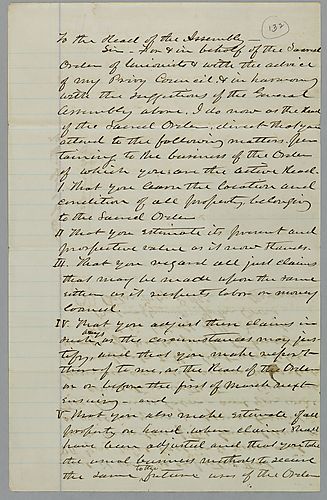 132
To the Head of the Assembly—
Sir— For & in behalf of the Sacred
Order of Unionists & with the advice
of my Privy Council & in harmony
with the suggestions of the General
Assembly above, I do now as the Head
of the Sacred Order, direct that you
attend to the following matters per-
taining to the business of the Order
of which you are the active Head.
I That you learn the location and
condition of all property belonging
to the Sacred Order
II That you estimate its present and
prospective value as it now stands.
III. That you regard all just claims
that may be made upon the same
either as it respects labor or money
loaned.
IV. That you adjust these claims in
such ways as the circumstances may jus-
tify, and that you make report
thereof to me, as the Head of the Order
on or before the first of March next
ensuing. and
V. That you also make estimate of all
property on hand when claims shall
have been adjusted and that you take
the usual business methods to secure
the same to the future uses of the Order